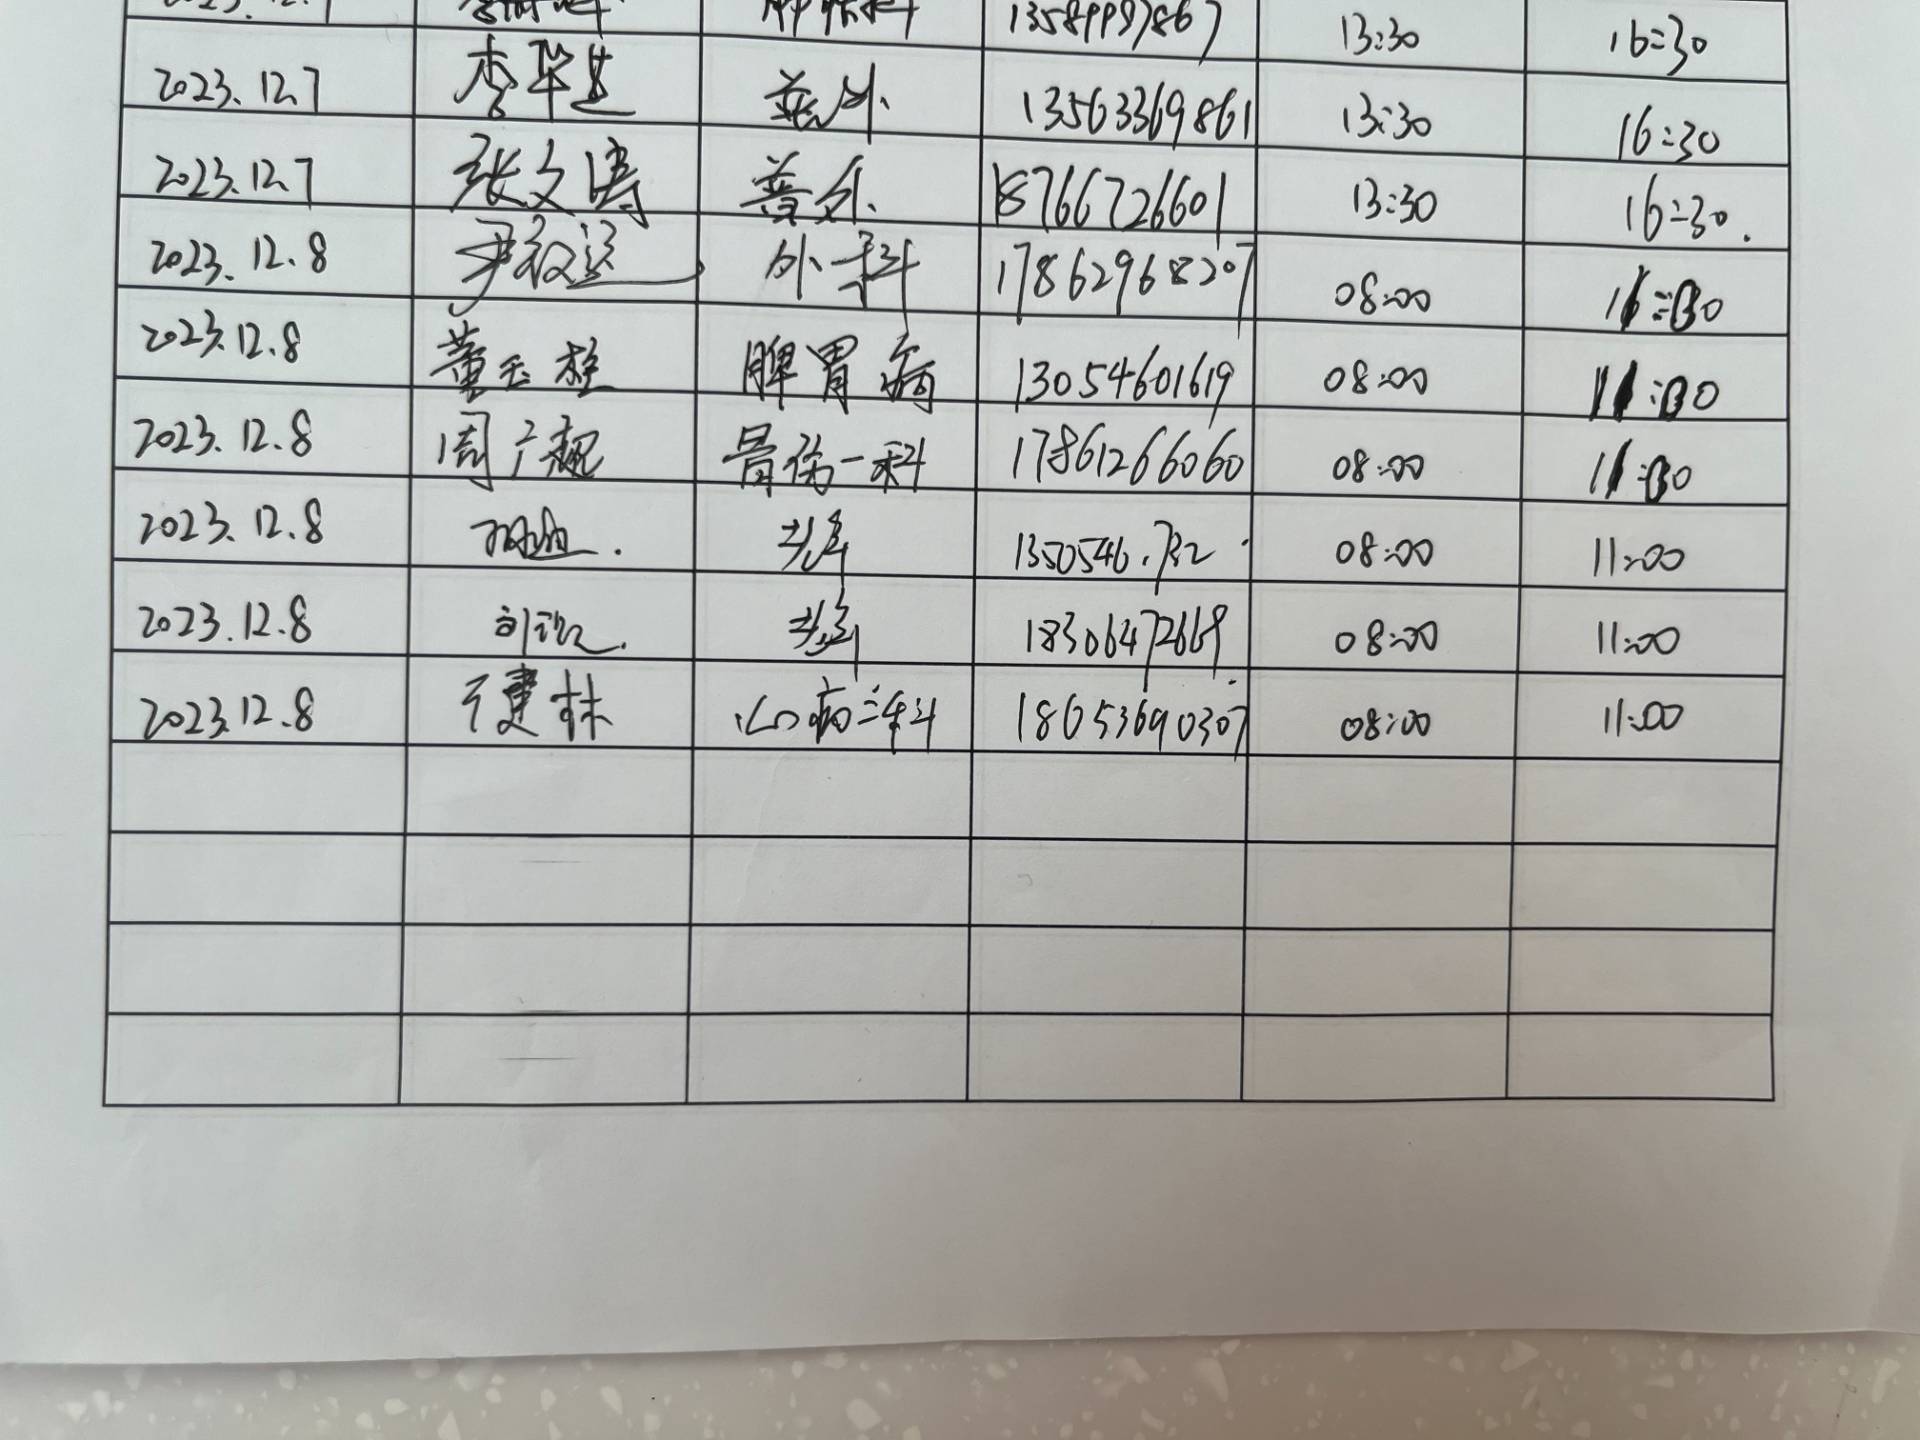 13589997867 13:30 16:30
2023.12.7 李华建 普外 13563369861 13:30 16:30
2023.12.7 张文涛 普外 18766726601 13:30 16:30.
2023.12.8 外一科 17862968207 08:00
2023.12.8 董玉柱 脾胃病 13054601619 08:00 11:00
2023.12.8 周广超 骨伤一科 17861266060 08:00 11:00
2023.12.8 08:00 11:00
2023.12.8 18306472669 08:00 11:00
2023.12.8 建林 心病二科 18653690307 08:00 11:00